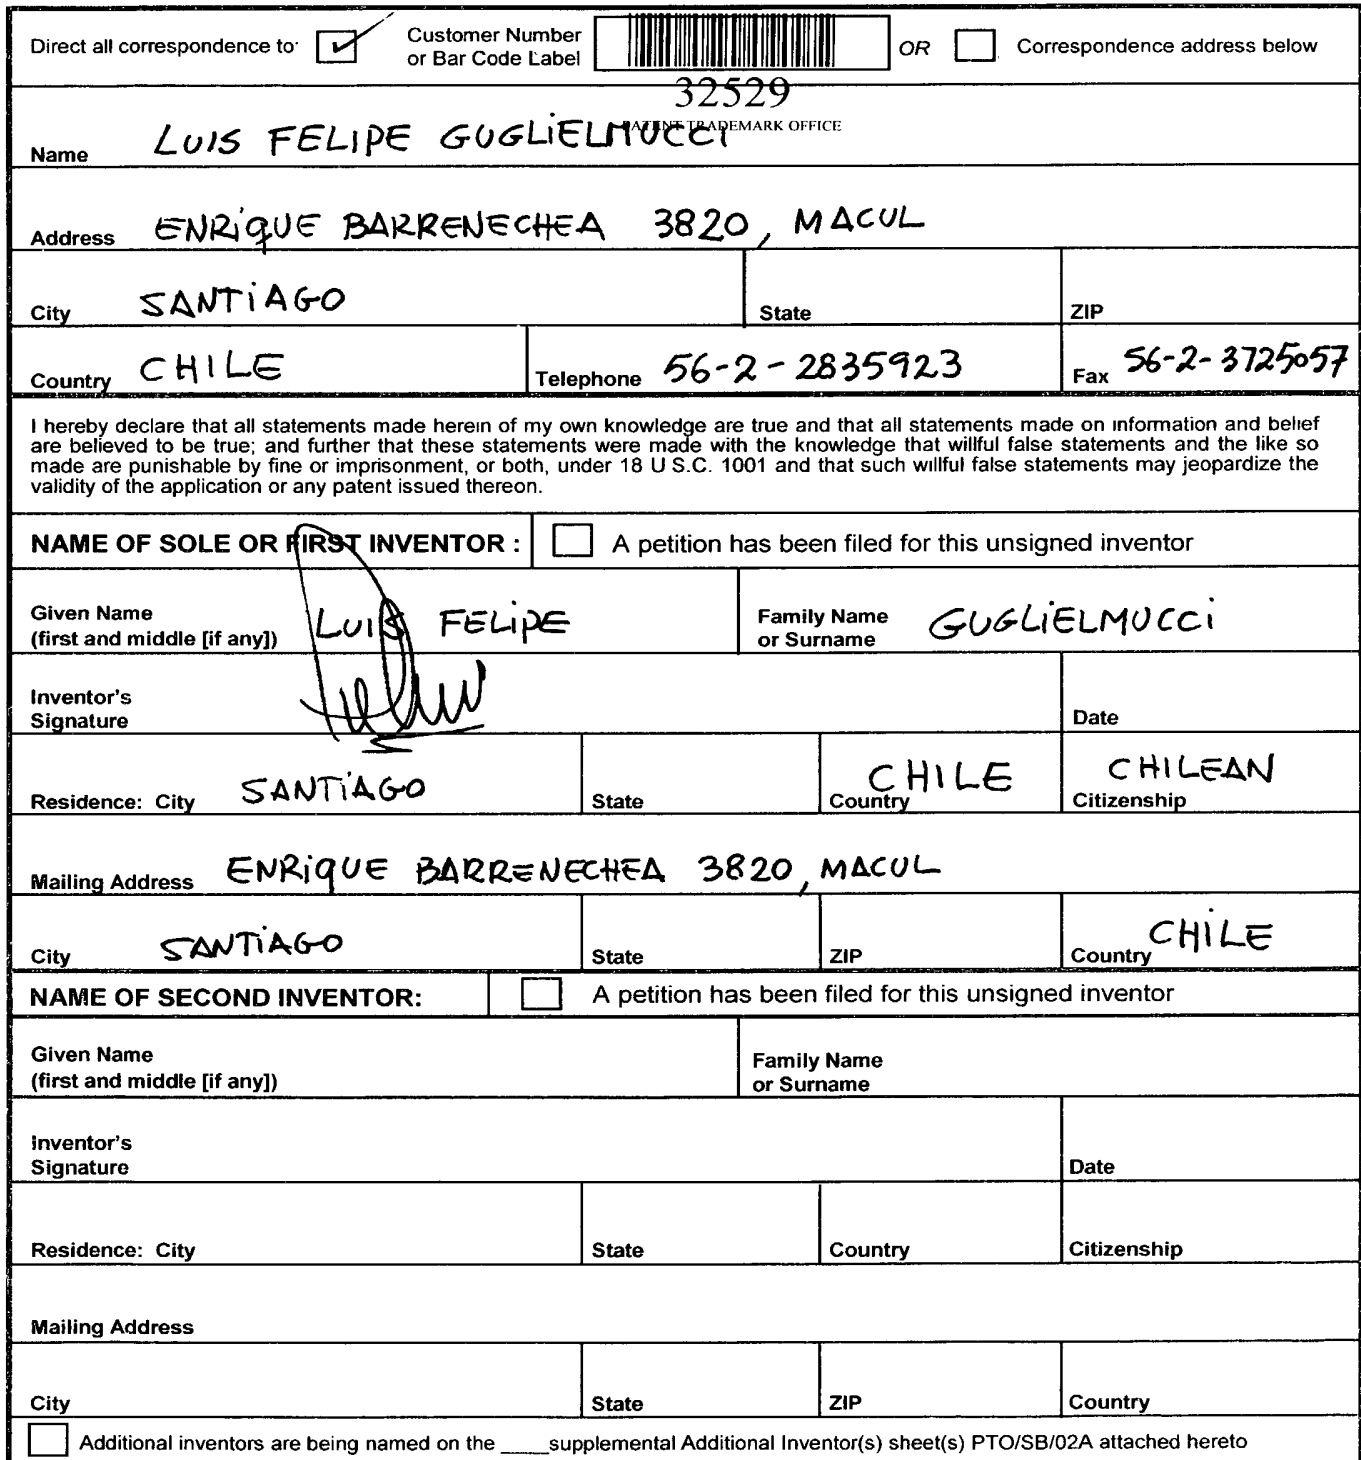 Direct all correspondence to: Customer Number or Bar Code Label OR Correspondence address below
32529
PATENT TRADEMARK OFFICE
Name LUIS FELIPE GUGLIELMUCCI
Address ENRIQUE BARRENECHEA 3820, MACUL
City SANTIAGO State ZIP
Country CHILE Telephone 56-2-2835923 Fax 56-2-3725057
I hereby declare that all statements made herein of my own knowledge are true and that all statements made on information and belief
are believed to be true; and further that these statements were made with the knowledge that willful false statements and the like so
made are punishable by fine or imprisonment, or both, under 18 U S.C. 1001 and that such willful false statements may jeopardize the
validity of the application or any patent issued thereon.
NAME OF SOLE OR FIRST INVENTOR : A petition has been filed for this unsigned inventor
Given Name (first and middle [if any]) LUIS FELIPE Family Name or Surname GUGLIELMUCCI
Inventor's Signature Date
Residence: City SANTIAGO State Country CHILE Citizenship CHILEAN
Mailing Address ENRIQUE BARRENECHEA 3820, MACUL
City SANTIAGO State ZIP Country CHILE
NAME OF SECOND INVENTOR: A petition has been filed for this unsigned inventor
Given Name (first and middle [if any]) Family Name or Surname
Inventor's Signature Date
Residence: City State Country Citizenship
Mailing Address
City State ZIP Country
Additional inventors are being named on the ____supplemental Additional Inventor(s) sheet(s) PTO/SB/02A attached hereto